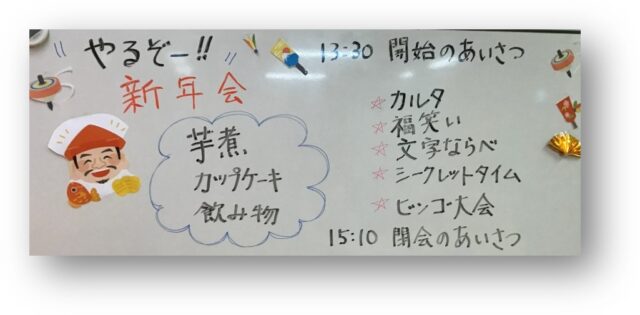 "やるぞー!!"
新年会
芋煮
カップケーキ
飲み物
13:30 開始のあいさつ
☆カルタ
☆福笑い
☆文字ならべ
☆シークレットタイム
☆ビンゴ大会
15:10 閉会のあいさつ